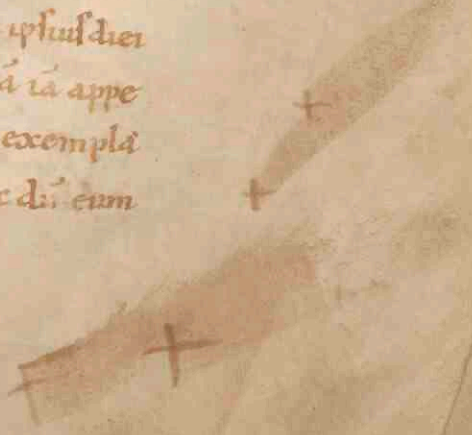 ipsius diei
ā iā appe
exempla
c dū eum